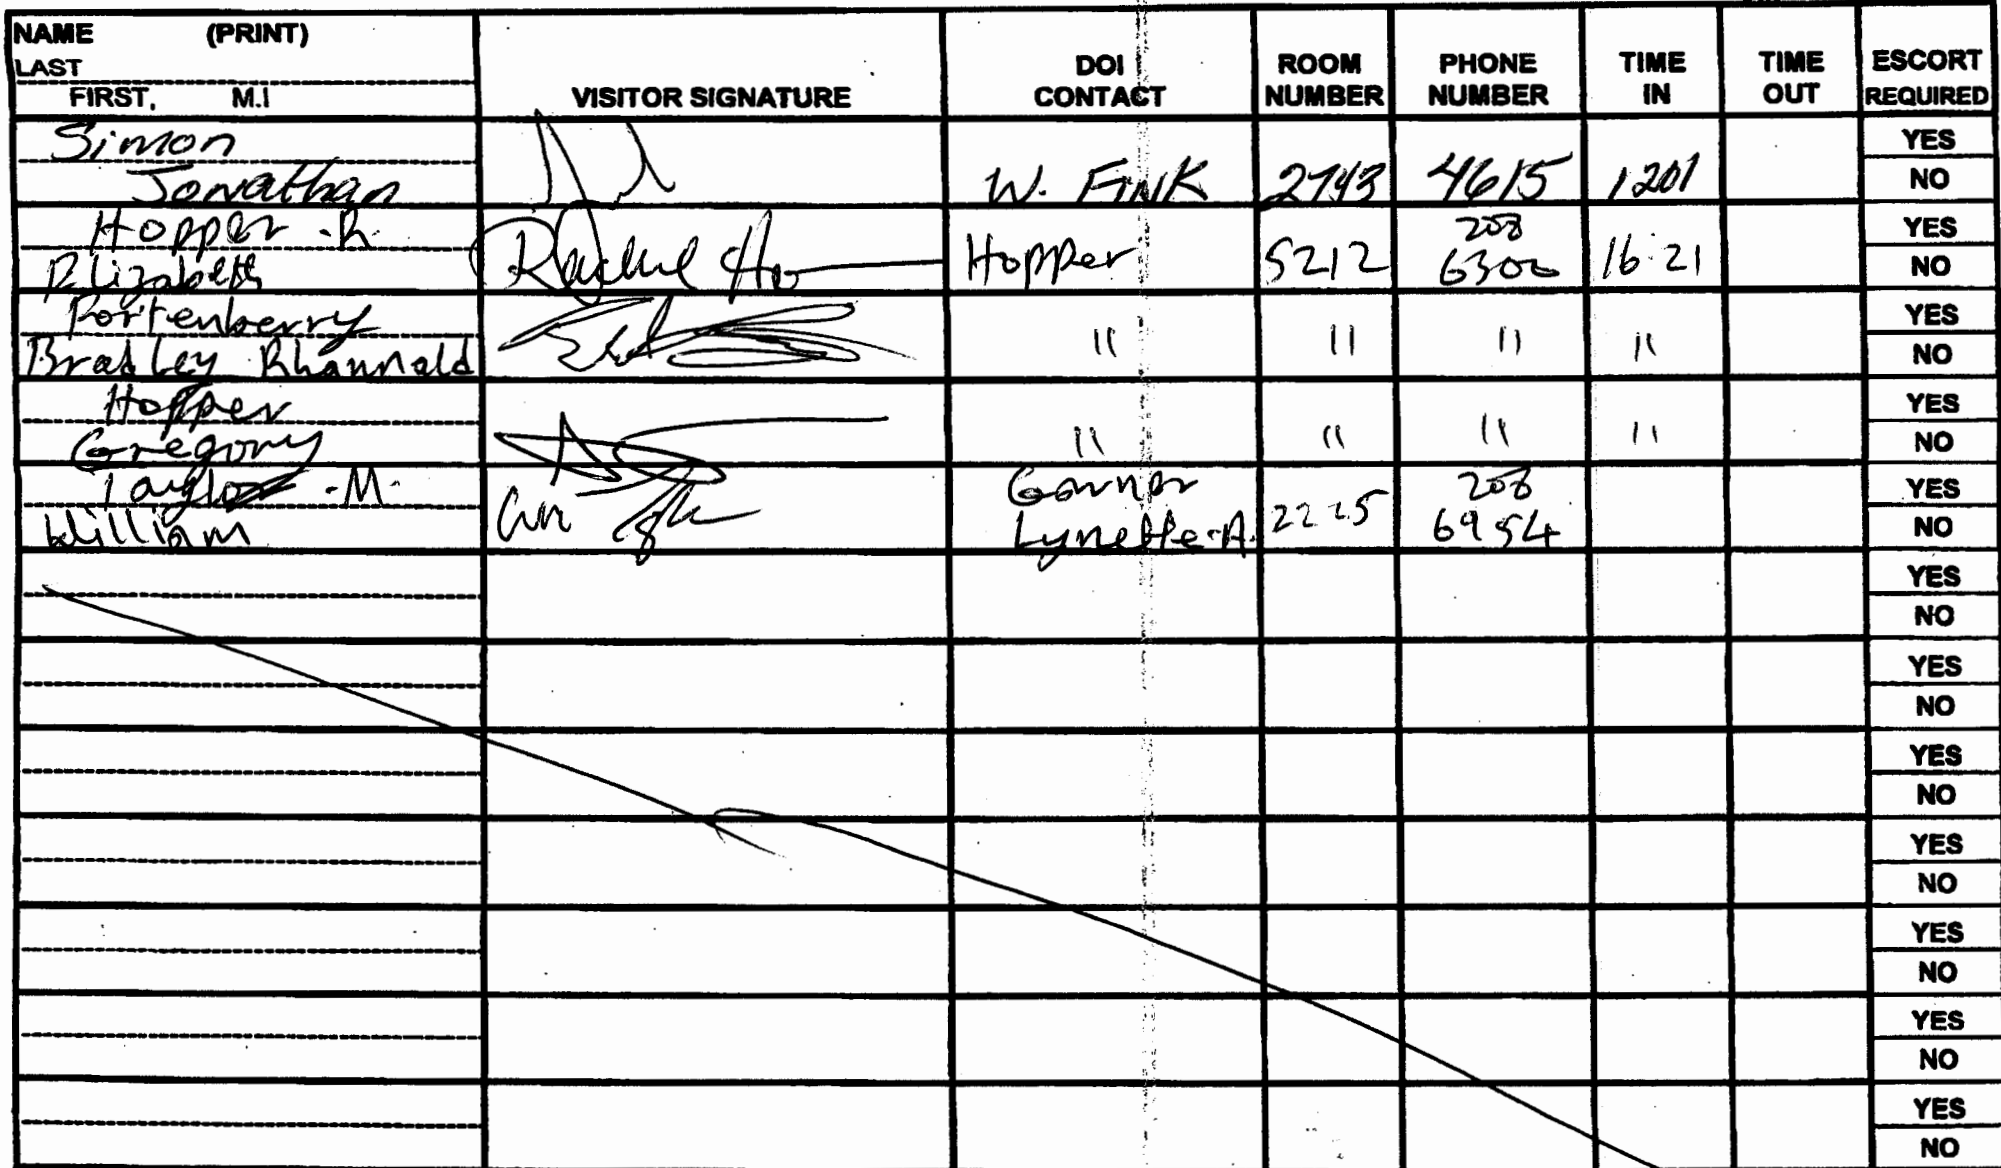 NAME (PRINT)
LAST
FIRST, M.I
VISITOR SIGNATURE
DOI CONTACT
ROOM NUMBER
PHONE NUMBER
TIME IN
TIME OUT
ESCORT REQUIRED
Simon
Jonathan W. FINK 2743 4615 1201
YES
NO
Hopper .R.
Elizabeth Rachel Ho Hopper 5212 208 6300 16 21
YES
NO
Fortenberry
Bradley Rhannald " " " "
YES
NO
Hopper
Gregory " " " "
YES
NO
Taylor .M.
William Garner Lynette.A. 2225 208 6954
YES
NO
YES
NO
YES
NO
YES
NO
YES
NO
YES
NO
YES
NO
YES
NO